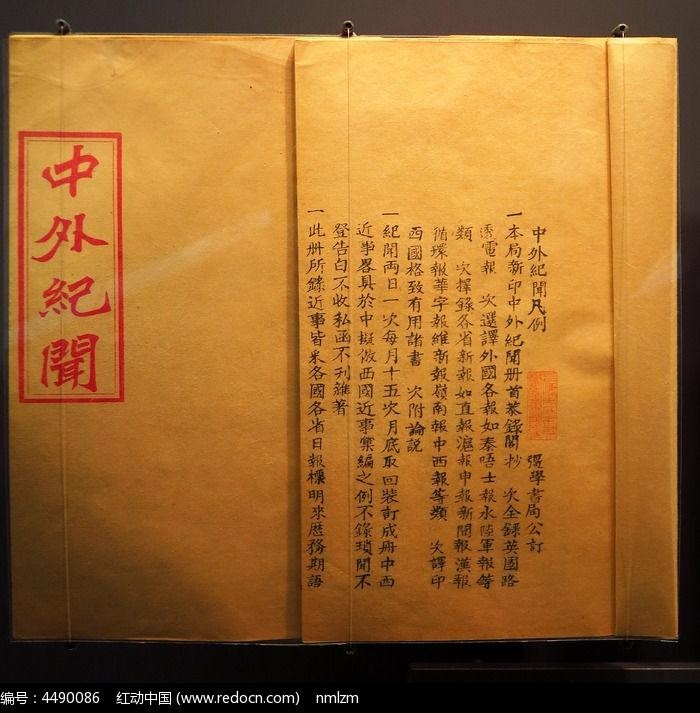 中外紀聞
中外紀聞凡例 彊學書局公訂
一本局新印中外紀聞册首恭錄閣抄 次全錄英國路
透電報 次選譯外國各報如泰唔士報水陸軍報等
類 次擇錄各省新報如直報滬報申報新聞報漢報
循環報華字報維新報嶺南報中西報等類 次譯印
西國格致有用諸書 次附論説
一紀聞兩日一次每月十五次月底取回裝訂成册中西
近事畧具於中擬倣西國近事彙編之例不錄瑣聞不
登告白不收私函不刊雜著
一此册所錄近事皆采各國各省日報標明來歷務期語
编号：4490086 红动中国 (www.redocn.com) nmlzm